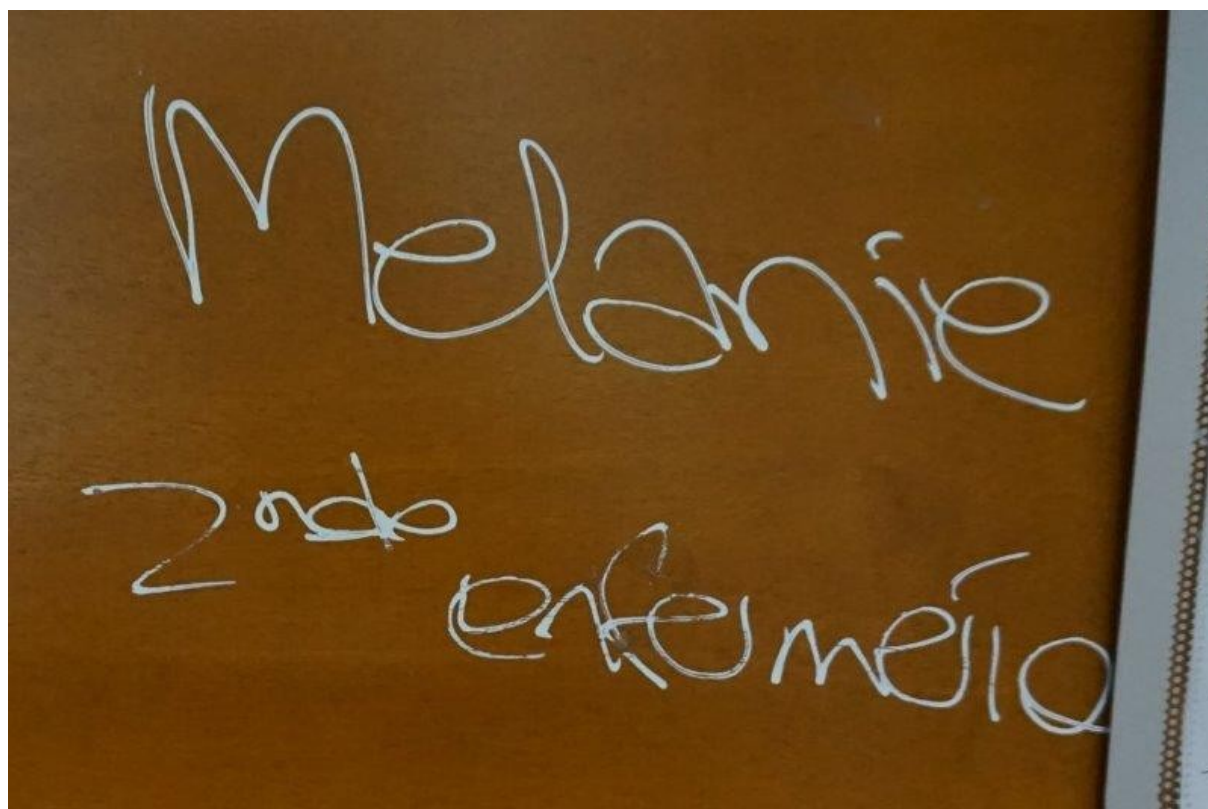 Melanie
2ndo
enfermeria